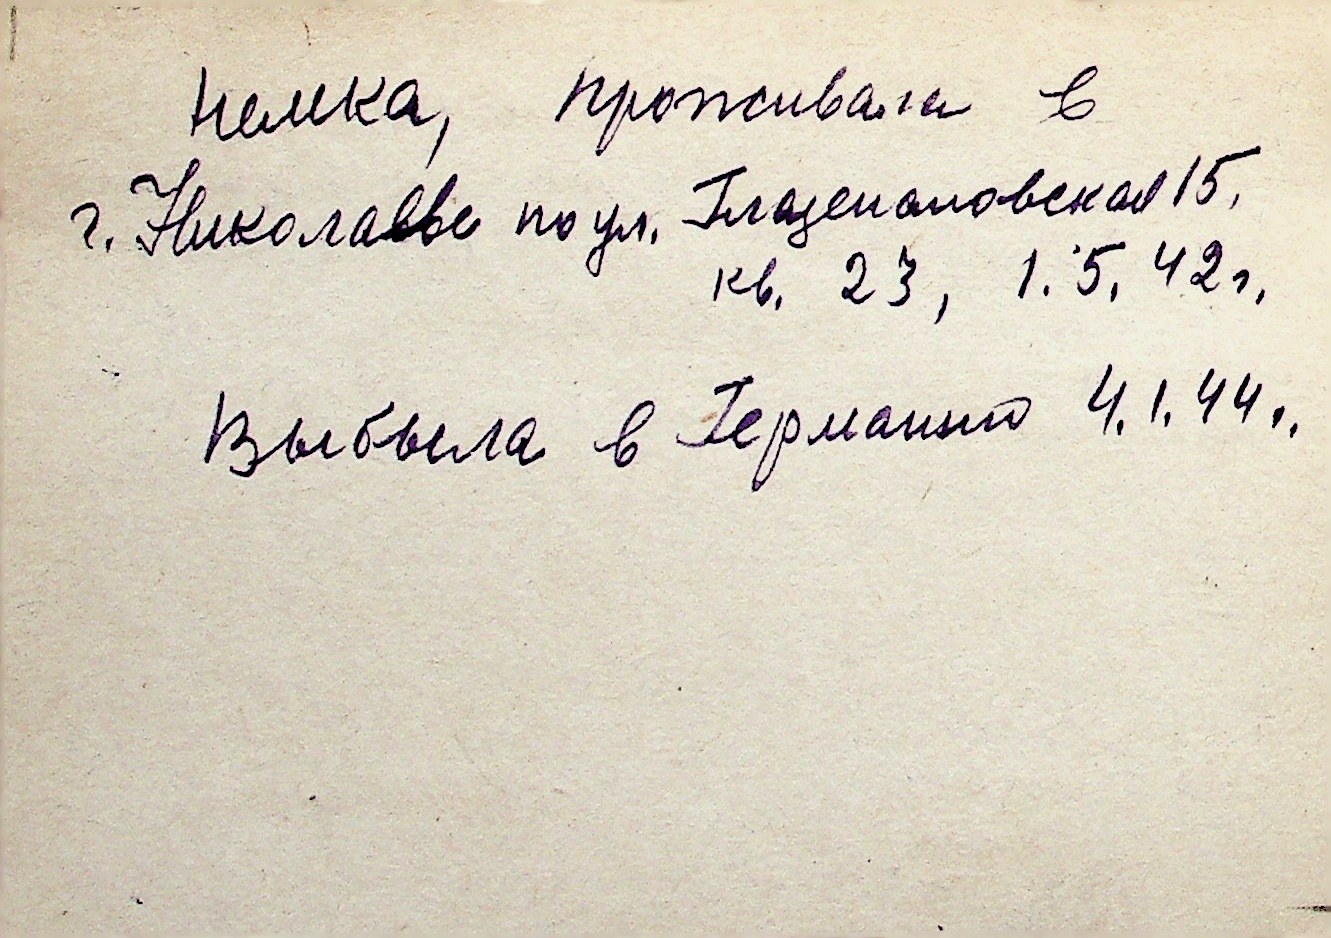 немка, проживала в
г. Николаеве по ул. Глазенаповская 15,
кв. 23, 1.5.42 г.
Выбыла в Германию 4.1.44 г.